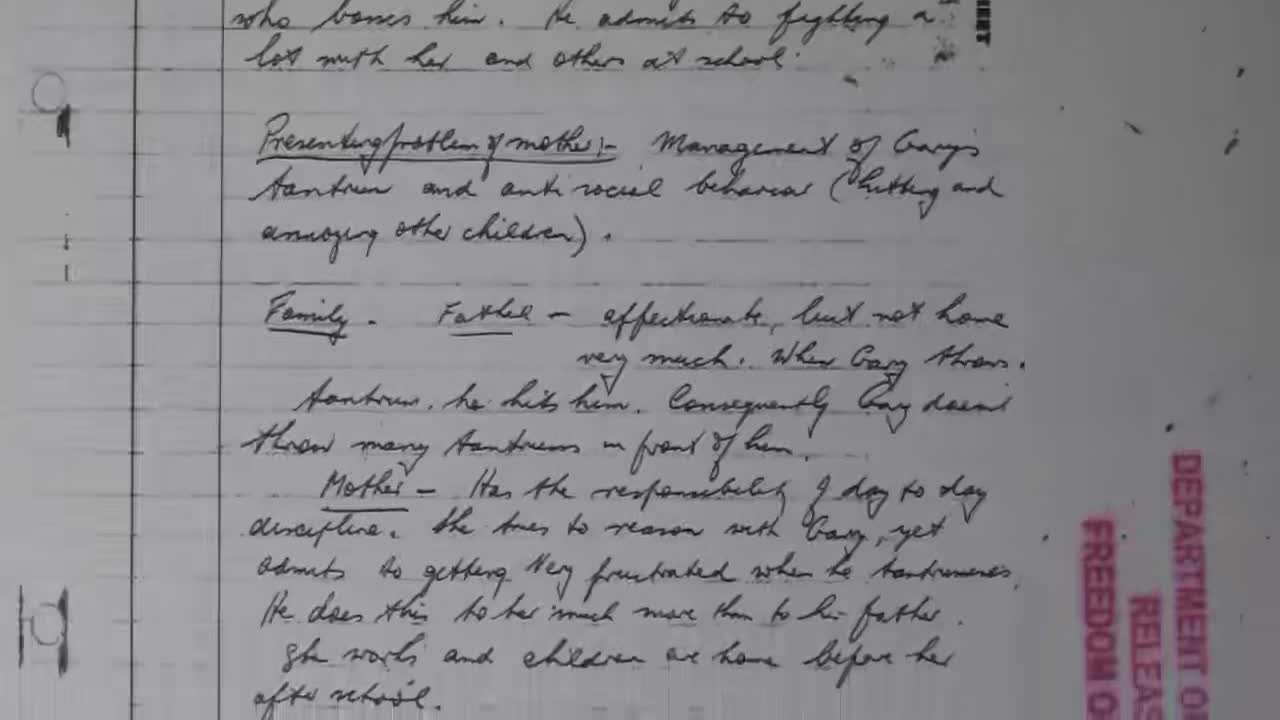 who bosses him. He admits to fighting a
lot with her and others at school.
Presenting problem of mother:- Management of Gary's
tantrum and antisocial behavior (hitting and
annoying other children).
Family. Father - affectionate, but not home
very much. When Gary throws
tantrum, he hits him. Consequently Gary doesn't
throw many tantrums in front of him.
Mother - Has the responsibility of day to day
discipline. She tries to reason with Gary, yet
admits to getting very frustrated when he tantrums.
He does this to her much more than to his father.
She works and children are home before her
after school.
DEPARTMENT O
RELEAS
FREEDOM O